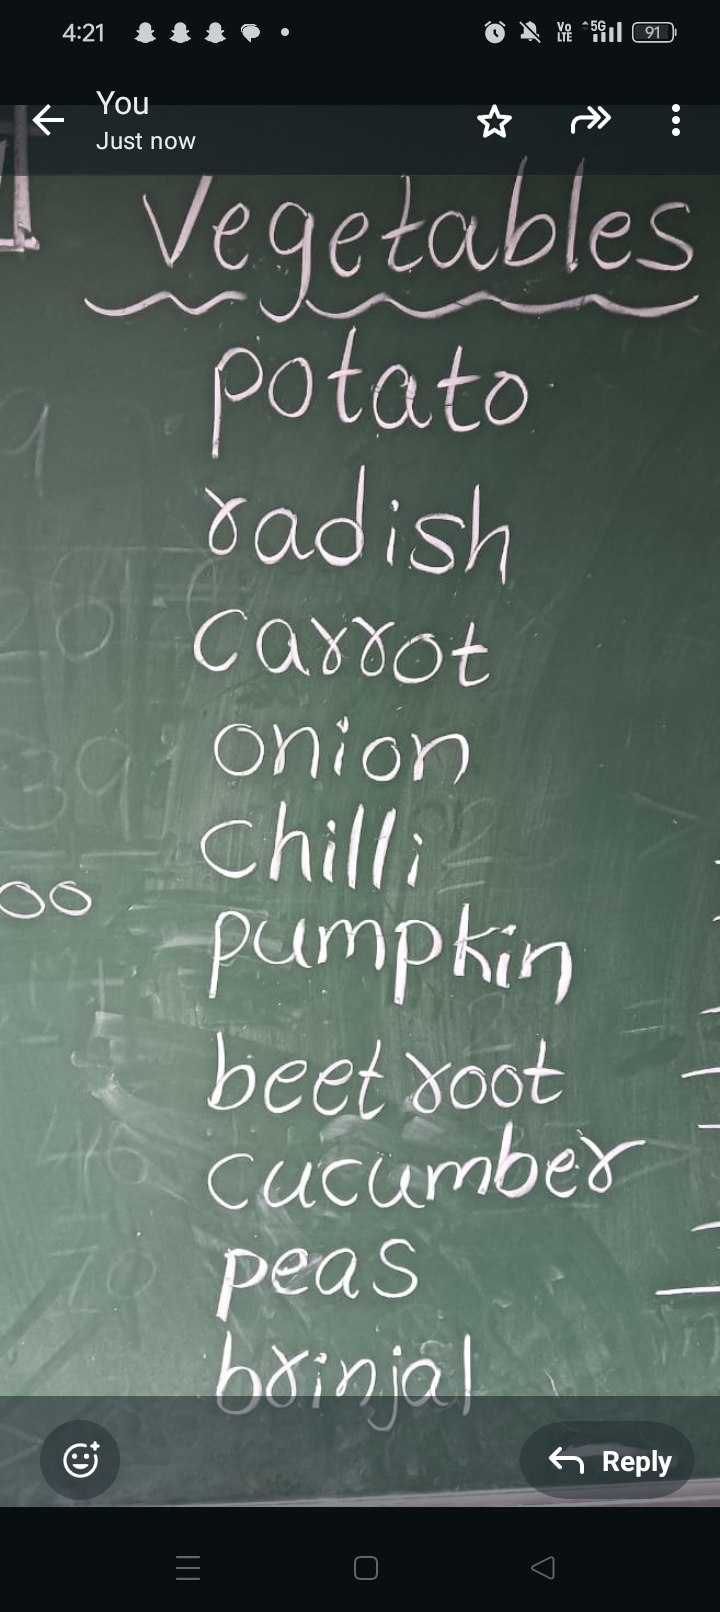 4:21 Vo LTE 5G 91
You
Just now
Vegetables
potato
radish
carrot
onion
chilli
pumpkin
beet root
cucumber
peas
brinjal
Reply